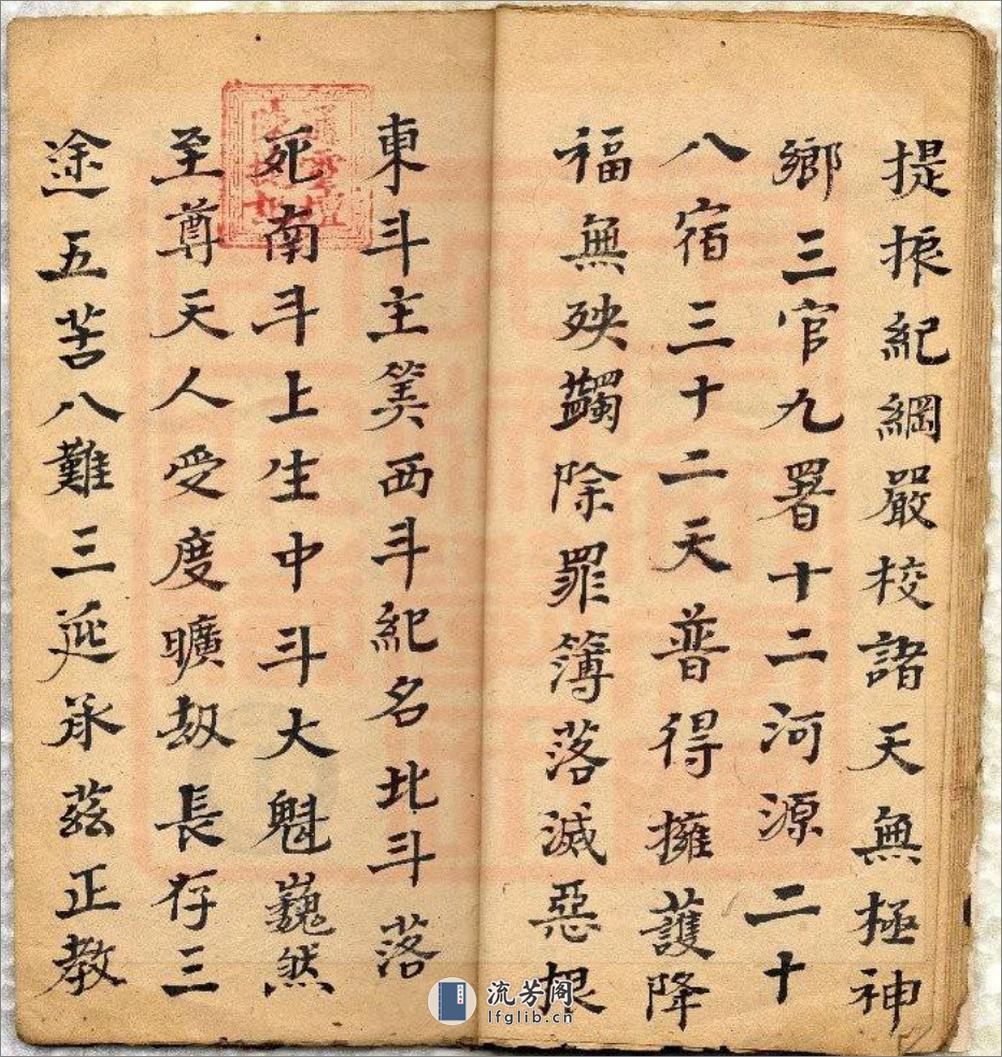 提振紀綱嚴校諸天無極神
鄉三官九署十二河源二十
八宿三十二天普得擁護降
福無殃蠲除罪簿落滅惡根
東斗主筭西斗紀名北斗落
死南斗上生中斗大魁巍然
至尊天人受度曠劫長存三
途五苦八難三延承茲正教
流芳阁
lfglib.cn